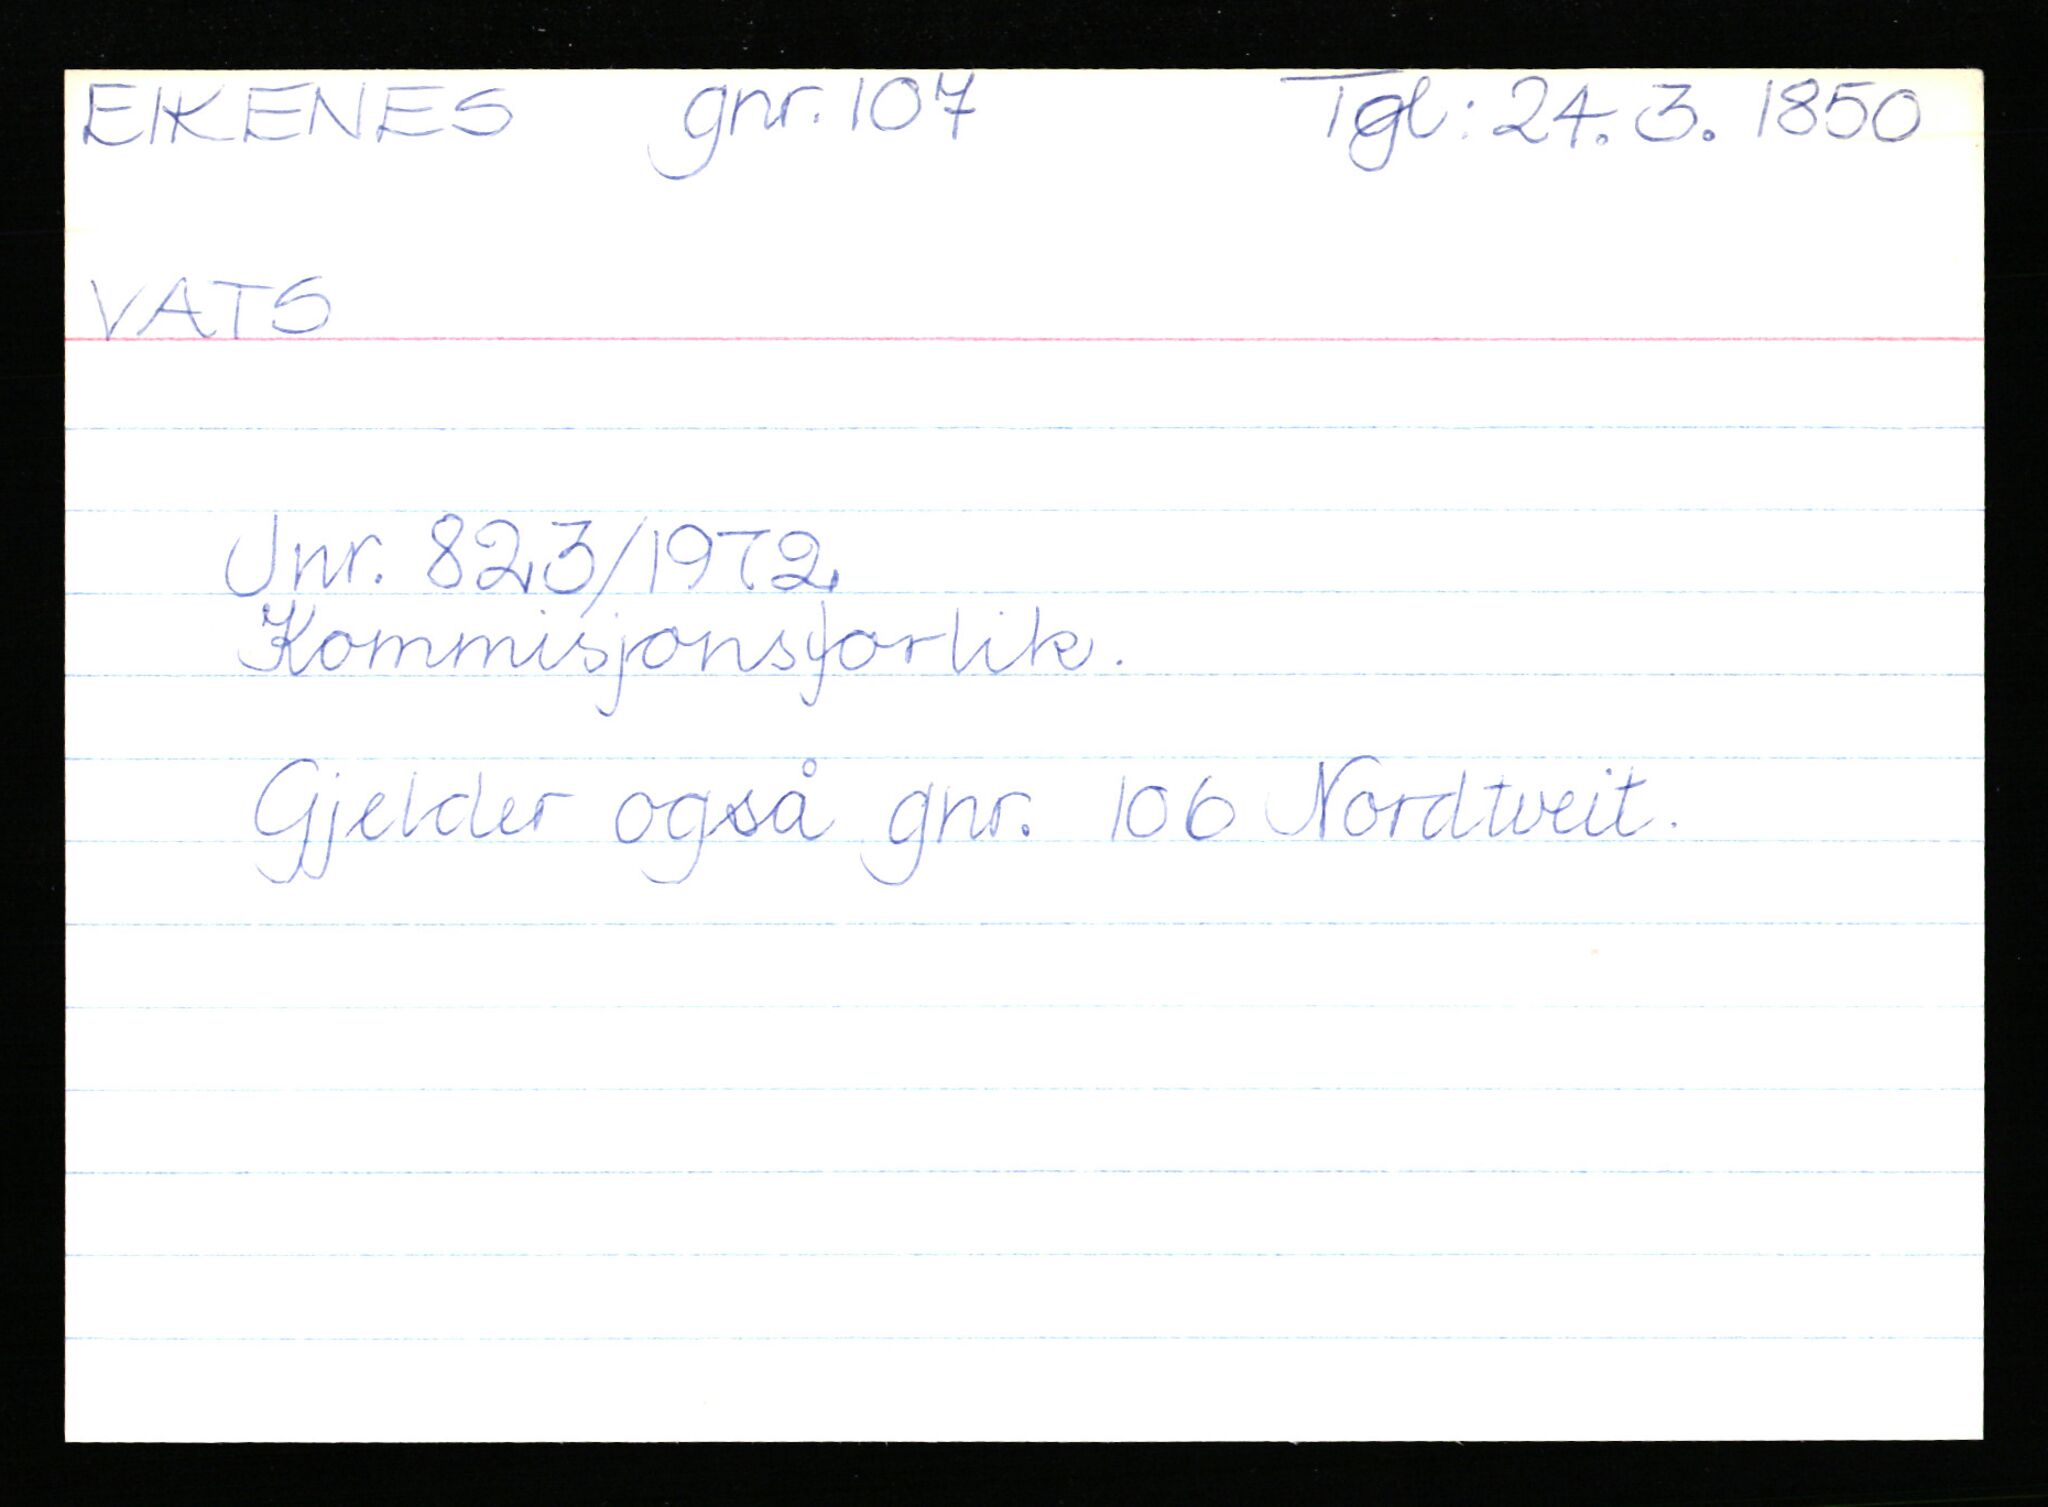 EIKENES gnr. 107 Tgl: 24. 3. 1850
VATS
Jnr. 823/1972
Kommisjonsforlik.
Gjelder også gnr. 106 Nordtveit.